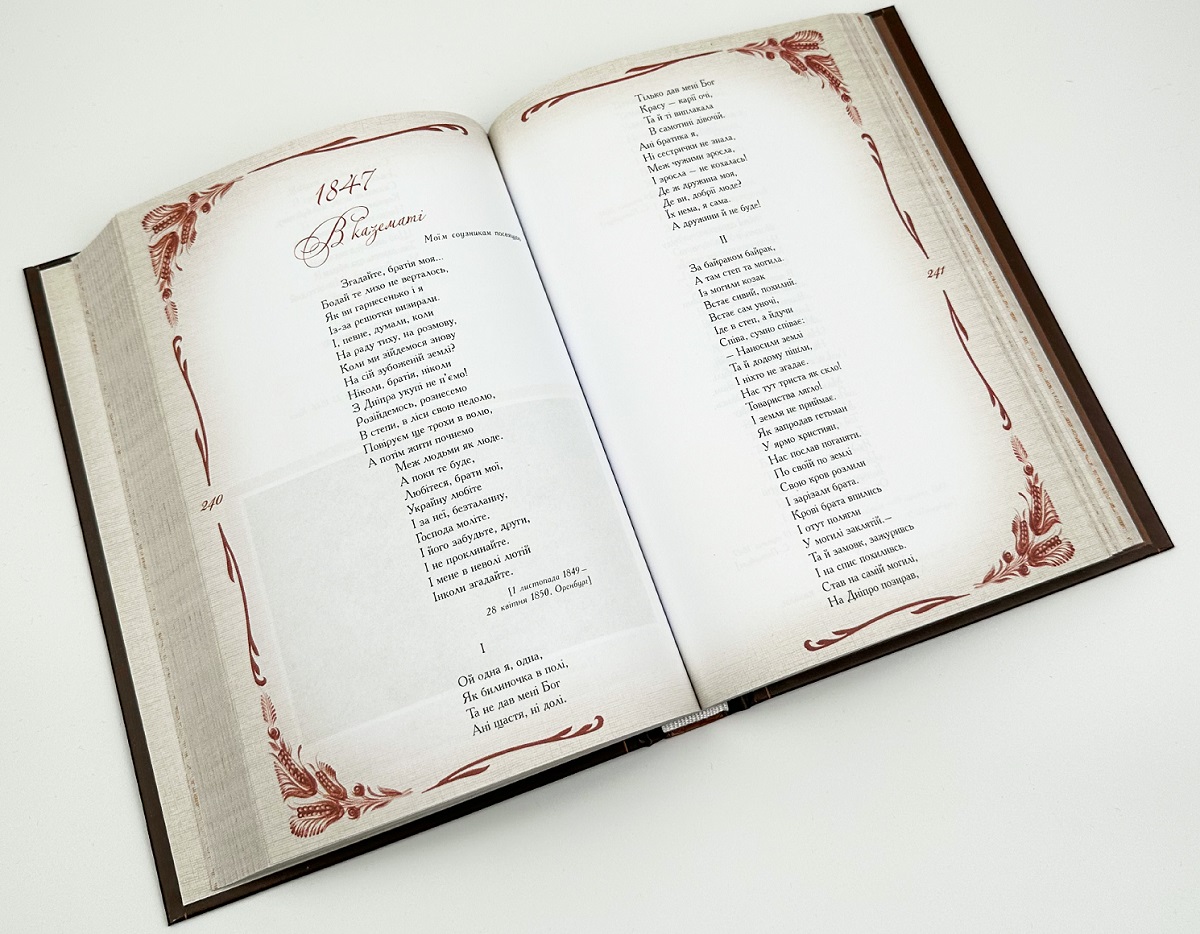 1847
В казематі
Моїм соузникам посвящаю
Згадайте, братія моя...
Бодай те лихо не верталось,
Як ви гарнесенько і я
Із-за решотки визирали.
І, певне, думали, коли
На раду тиху, на розмову,
Коли ми зійдемося знову
На сій зубоженій землі?
Ніколи, братія, ніколи
З Дніпра укупі не п'ємо!
Розійдемось, рознесемо
В степи, в ліси свою недолю,
Повіруєм ще трохи в волю,
А потім жити почнемо
Меж людьми як люде.
А поки те буде,
Любітеся, брати мої,
Украйну любіте
І за неї, безталанну,
Господа моліте.
І його забудьте, други,
І не проклинайте.
І мене в неволі лютій
Інколи згадайте.
[1 листопада 1849 –
28 квітня 1850. Оренбург]
I
Ой одна я, одна,
Як билиночка в полі,
Та не дав мені Бог
Ані щастя, ні долі.
240
Тілько дав мені Бог
Красу — карії очі,
Та й ті виплакала
В самотині дівочій.
Ані братика я,
Ні сестрички не знала,
Меж чужими зросла,
І зросла — не кохалась!
Де ж дружина моя,
Де ви, добрії люде?
Їх нема, я сама.
А дружини й не буде!
II
За байраком байрак,
А там степ та могила.
Із могили козак
Встає сивий, похилий.
Встає сам уночі,
Іде в степ, а йдучи
Співа, сумно співає:
— Наносили землі
Та й додому пішли,
І ніхто не згадає.
Нас тут триста як скло!
Товариства лягло!
І земля не приймає.
Як запродав гетьман
У ярмо християн,
Нас послав поганяти.
По своїй по землі
Свою кров розлили
І зарізали брата.
Крові брата впились
І отут полягли
У могилі заклятій.—
Та й замовк, зажуривсь
І на спис похиливсь.
Став на самій могилі,
На Дніпро позирав,
241